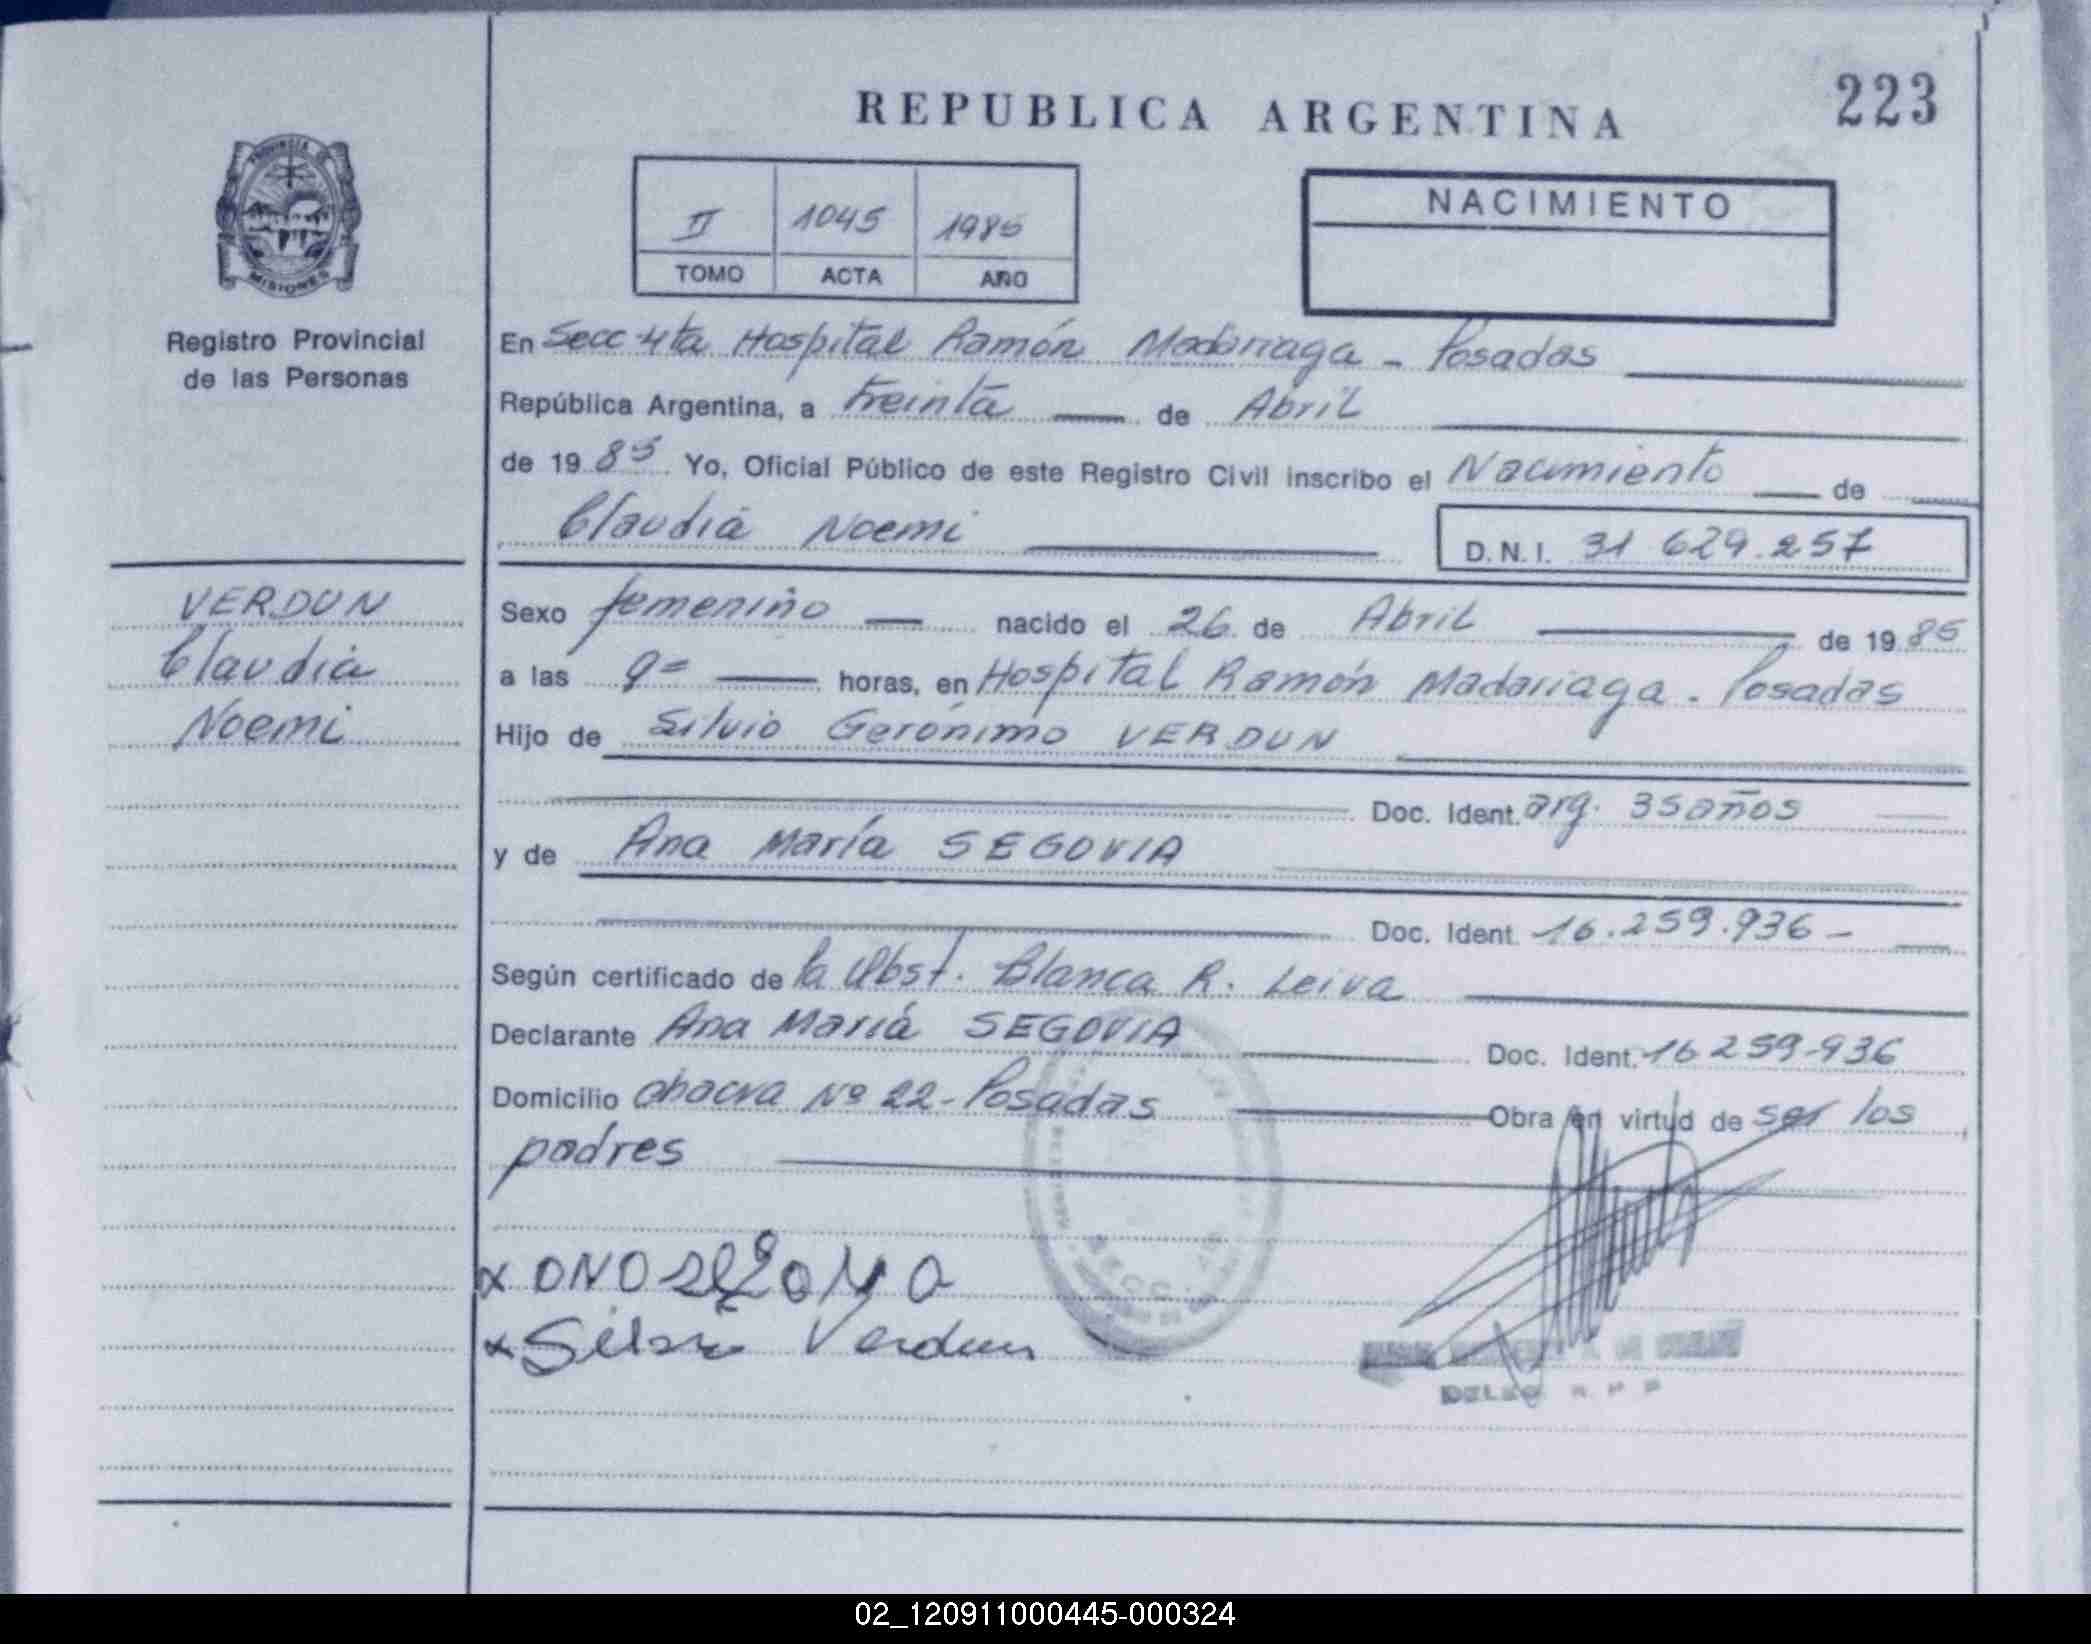 223
REPUBLICA ARGENTINA
PROVINCIA DE
MISIONES
Registro Provincial
de las Personas
II 1045 1985
TOMO ACTA AÑO
NACIMIENTO
En Secc 4ta Hospital Ramón Madariaga - Posadas
República Argentina, a treinta de Abril
de 1985 Yo, Oficial Público de este Registro Civil inscribo el Nacimiento de
Claudia Noemi D.N.I. 31 629.257
VERDUN
Claudia
Noemi
Sexo femenino nacido el 26 de Abril de 1985
a las 9= horas, en Hospital Ramón Madariaga. Posadas
Hijo de Silvio Gerónimo VERDUN
Doc. Ident. arg. 35 años
y de Ana María SEGOVIA
Doc. Ident. 16.259.936-
Según certificado de la Obst. Blanca R. Leiva
Declarante Ana María SEGOVIA Doc. Ident. 16 259-936
Domicilio chacra Nº 22-Posadas Obra en virtud de ser los
padres
Verdun
SECC.
02_120911000445-000324